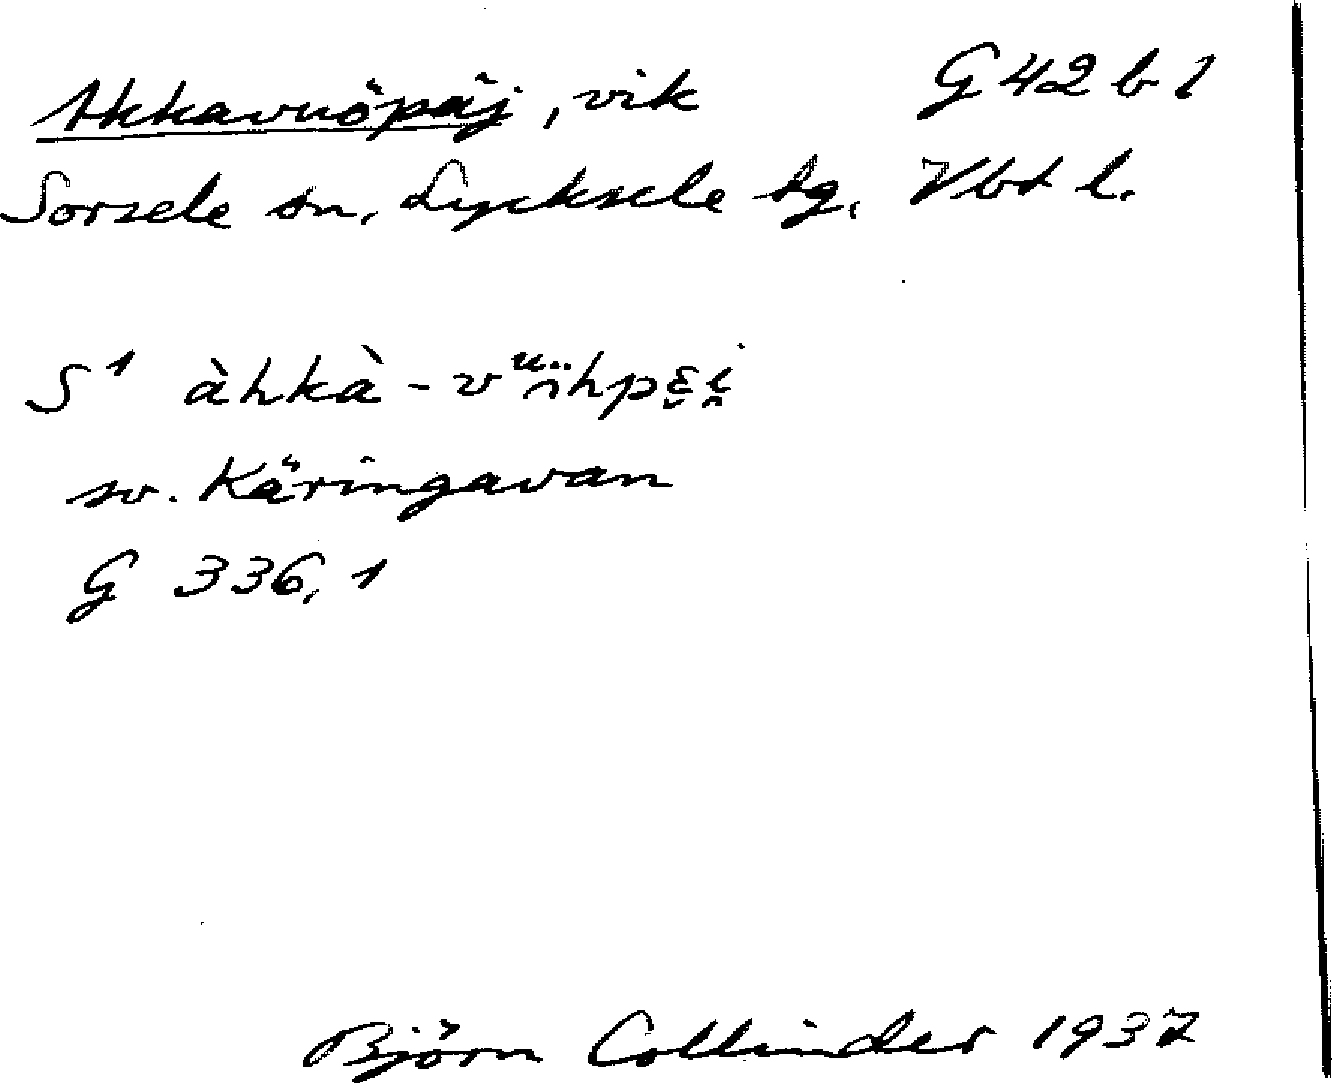 Akkavuöpäj, vik G 42 b 1
Sorsele sn, Lycksele tg, Vbt l.
S¹ àhkà-vᵘ̈ɑ̈hpɛ̮i̯
sv. Käringavan
G 336,1
Björn Collinder 1937